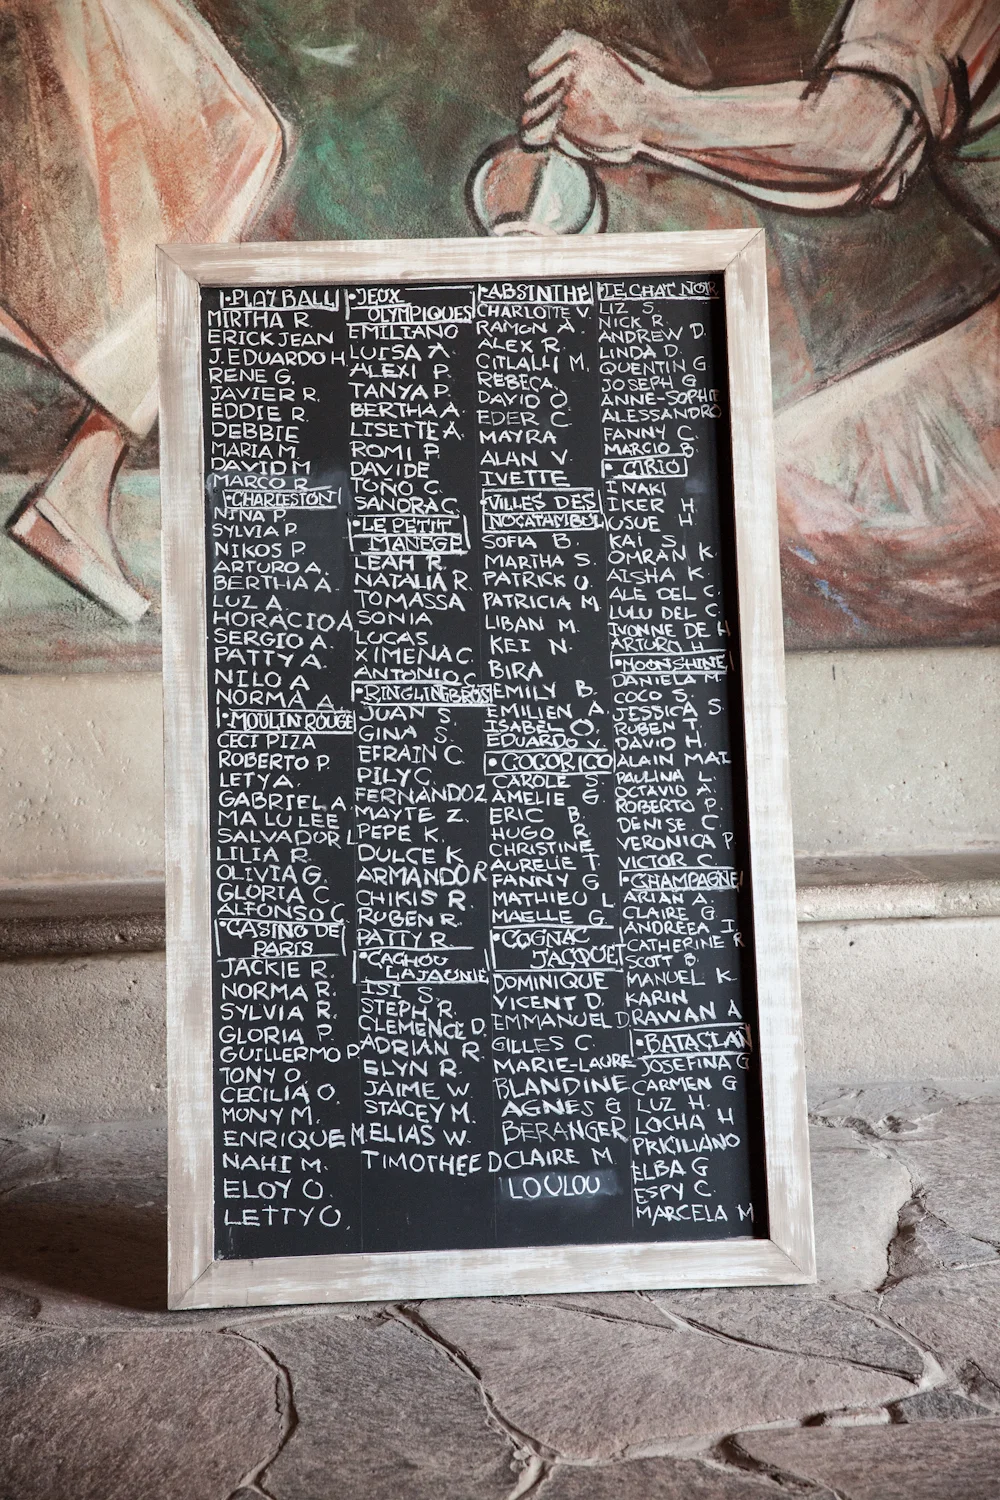 •PLAY BALL
MIRTHA R.
ERICK JEAN
J. EDUARDO H
RENE G.
JAVIER R.
EDDIE R.
DEBBIE
MARIA M.
DAVID M
MARCO R.
•CHARLESTON
NINA P.
SYLVIA P.
NIKOS P.
ARTURO A.
BERTHA A.
LUZ A.
HORACIO A
SERGIO A.
PATTY A.
NILO A
NORMA A.
•MOULIN ROUGE
CECI PIZA
ROBERTO P.
LETY A.
GABRIEL A.
MA LU LEE
SALVADOR L
LILIA R.
OLIVIA G.
GLORIA C.
ALFONSO C.
•CASINO DE
PARIS
JACKIE R.
NORMA R.
SYLVIA R.
GLORIA P.
GUILLERMO P
TONY O.
CECILIA O.
MONY M.
ENRIQUE M.
NAHI M.
ELOY O.
LETTY O.
•JEUX
OLYMPIQUES
EMILIANO
LUISA A.
ALEXI P.
TANYA P.
BERTHA A.
LISETTE A.
ROMI P.
DAVIDE
TOÑO C.
SANDRA C.
•LE PETIT
MANEGE
LEAH R.
NATALIA R.
TOMASSA
SONIA
LUCAS
XIMENA C.
ANTONIO C.
•RINGLING BROS
JUAN S.
GINA S.
EFRAIN C.
PILY C.
FERNANDO Z
MAYTE Z.
PEPE K.
DULCE K
ARMANDO R
CHIKIS R.
RUBEN R.
PATTY R.
•CACHOU
LAJAUNIE
ISI S.
STEPH R.
CLEMENCE D.
ADRIAN R.
ELYN R.
JAIME W.
STACEY M.
ELIAS W.
TIMOTHEE D
•ABSINTHE
CHARLOTTE V.
RAMON A.
ALEX R.
CITLALLI M.
REBECA
DAVID O.
EDER C.
MAYRA
ALAN V.
IVETTE
•VILLES DES
NOCATAMBUL
SOFIA B.
MARTHA S.
PATRICK U.
PATRICIA M.
LIBAN M.
KEI N.
BIRA
EMILY B.
EMILIEN A.
ISABEL O.
EDUARDO V.
•COCORICO
CAROLE S.
AMELIE G.
ERIC B.
HUGO R.
CHRISTINE
AURELIE T.
FANNY G
MATHIEU L
MAELLE G.
•COGNAC
JACQUET
DOMINIQUE
VICENT D.
EMMANUEL D
GILLES C.
MARIE-LAURE
BLANDINE
AGNES G
BERANGER
CLAIRE M
LOULOU
•LE CHAT NOIR
LIZ S.
NICK R.
ANDREW D.
LINDA D.
QUENTIN G
JOSEPH G
ANNE-SOPHIE
ALESSANDRO
FANNY C.
MARCIO B.
•CIRIO
INAKI
IKER H
JOSUE H.
KAI S.
OMRAN K.
AISHA K.
ALE DEL C.
LULU DEL C.
IVONNE DE H
ARTURO H
•MOONSHINE
DANIELA M.
COCO S.
JESSICA S.
RUBEN T.
DAVID H.
ALAIN MAI
PAULINA L.
OCTAVIO A.
ROBERTO P.
DENISE C.
VERONICA P.
VICTOR C.
•CHAMPAGNE
ARIAN A.
CLAIRE G.
ANDREEA I.
CATHERINE R
SCOTT B.
MANUEL K
KARIN
RAWAN A
•BATACLAN
JOSEFINA G
CARMEN G
LUZ H.
LOCHA H
PRICILIANO
ELBA G
ESPY C.
MARCELA M